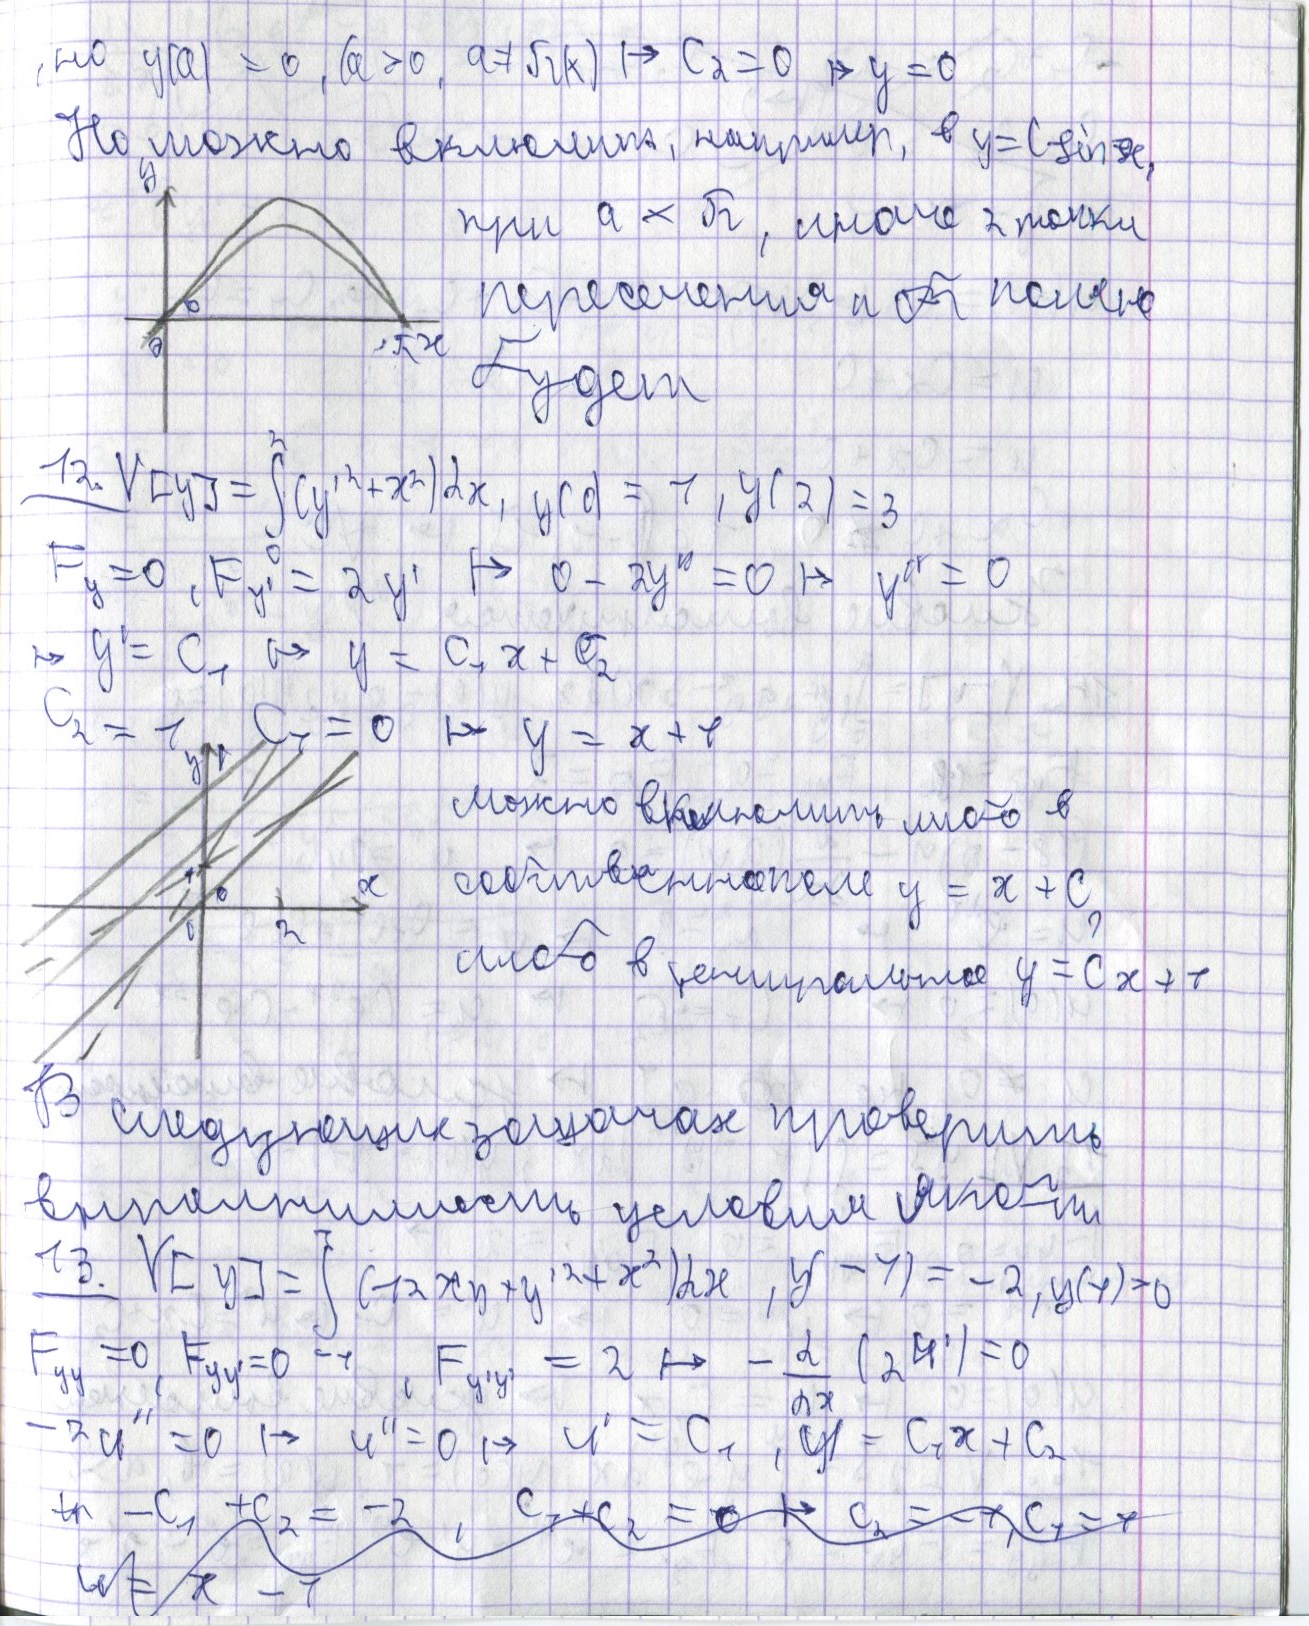 но y(a) = 0, (a>0, a≠πk) ↦ C₂=0 ↦ y=0
Но можно включить, например, в y=C sin x,
y
при a < π, иначе 2 точки
0
пересечения и поле не
0 π x
будет
12. V[y]=∫₀²(y'²+x²)dx, y(0)=1, y(2)=3
F_y=0, F_y'=2y' ↦ 0-2y''=0 ↦ y''=0
↦ y'=C₁ ↦ y=C₁x+C₂
C₂=1, C₁=0 ↦ y=x+1
y
можно включить либо в
1 x
собственное поле y=x+C,
0 2
либо в центральное y=Cx+1
В следующих задачах проверить
выполнимость условия Якоби
13. V[y]=∫₋₁¹(-12xy+y'²+x²)dx, y(-1)=-2, y(1)=0
F_yy=0, F_yy'=0, F_y'y'=2 ↦ -d/dx(2u')=0
-2u''=0 ↦ u''=0 ↦ u'=C₁, u=C₁x+C₂
-C₁+C₂=-2, C₁+C₂=0 ↦ C₂=-1, C₁=1
u=x-1